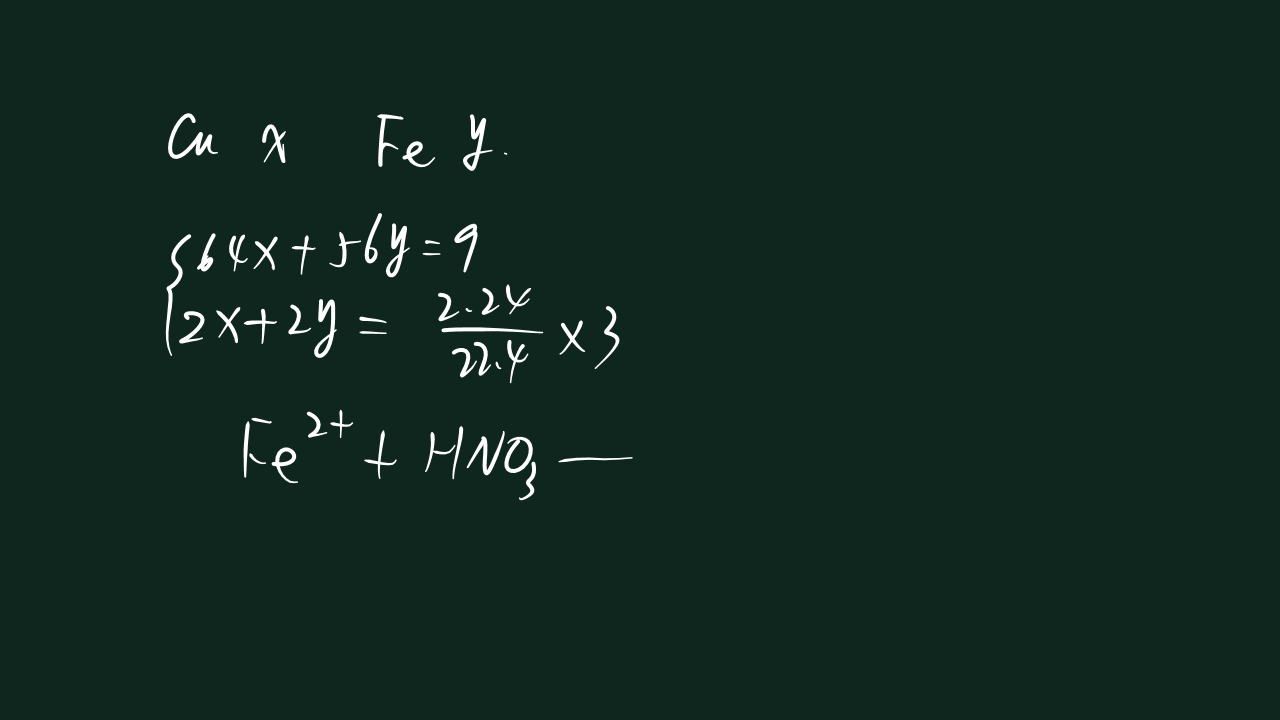 Cu x Fe y.
64x+56y=9
2x+2y = 2.24/22.4 ×3
Fe²⁺ + HNO₃ —